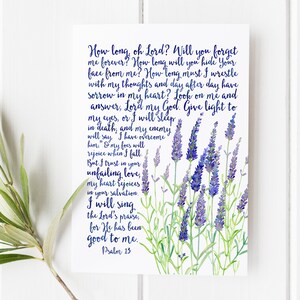 How long, oh Lord? Will you forget
me forever? How long will you hide Your
face from me? How long must I wrestle
with my thoughts and day after day have
sorrow in my heart? Look on me and
answer, Lord my God. Give light to
my eyes, or I will sleep
in death, and my enemy
will say, "I have overcome
him," & my foes will
rejoice when I fall.
But I trust in your
unfailing love;
my heart rejoices
in your salvation.
I will sing
the Lord's praise,
for He has been
good to me.
Psalm 13